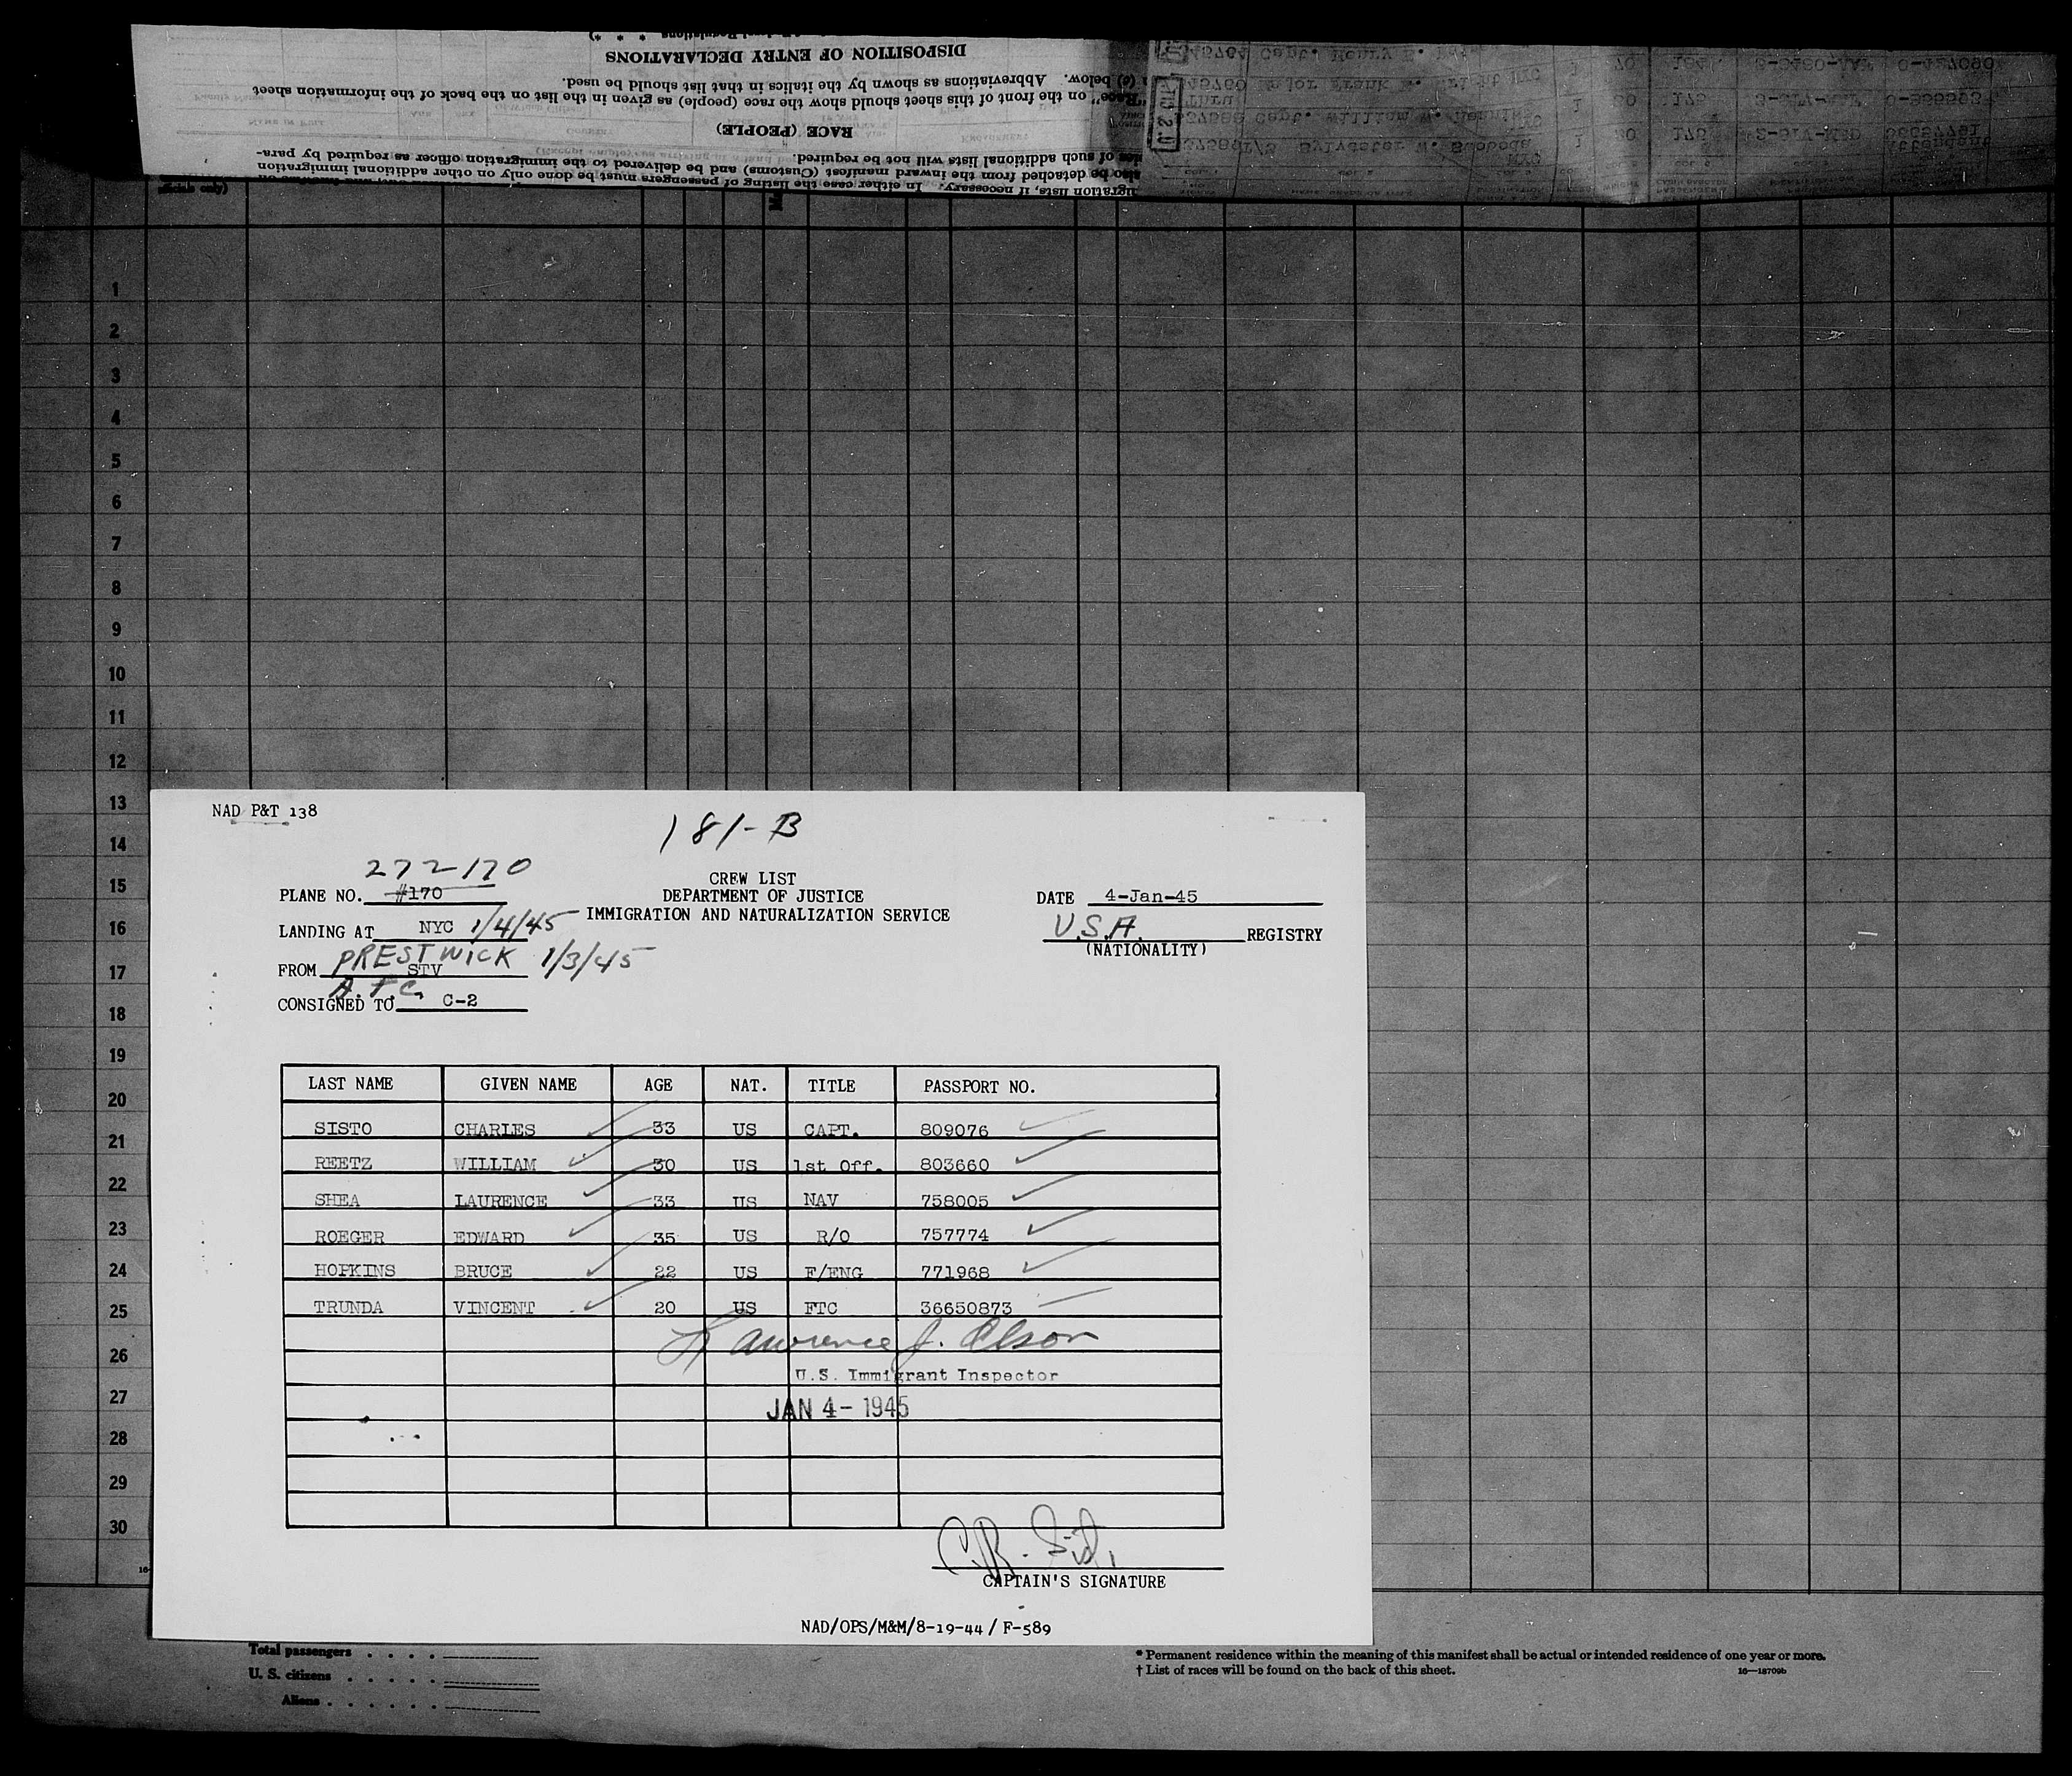 DISPOSITION OF ENTRY DECLARATIONS
(e) below. Abbreviations as shown by the italics in that list should be used.
"Race" on the front of this sheet should show the race (people) as given in the list on the back of the information sheet
RACE (PEOPLE)
of such additional lists will not be required.
also be detached from the inward manifest (Customs) and be delivered to the immigration officer as required by para-
lists, if necessary. In either case the listing of passengers must be done only on other additional immigration
officials only)
1
2
3
4
5
6
7
8
9
10
11
12
13
14
15
16
17
18
19
20
21
22
23
24
25
26
27
28
29
30
NAD P&T 138
181-B
272-170
PLANE NO. #170
CREW LIST
DEPARTMENT OF JUSTICE
IMMIGRATION AND NATURALIZATION SERVICE
DATE 4-Jan-45
LANDING AT NYC 1/4/45
U.S.A. REGISTRY
(NATIONALITY)
PRESTWICK 1/3/45
FROM STV
A.T.C.
CONSIGNED TO C-2
LAST NAME GIVEN NAME AGE NAT. TITLE PASSPORT NO.
SISTO CHARLES 33 US CAPT. 809076
REETZ WILLIAM 30 US 1st Off. 803660
SHEA LAURENCE 33 US NAV 758005
ROEGER EDWARD 35 US R/O 757774
HOPKINS BRUCE 22 US F/ENG 771968
TRUNDA VINCENT 20 US FTC 36650873
Lawrence J. Olson
U.S. Immigrant Inspector
JAN 4- 1945
CAPTAIN'S SIGNATURE
NAD/OPS/M&M/8-19-44/ F-589
Total passengers . . . .
U. S. citizens . . . . .
Aliens . . . . . .
* Permanent residence within the meaning of this manifest shall be actual or intended residence of one year or more.
† List of races will be found on the back of this sheet.
16—18709b